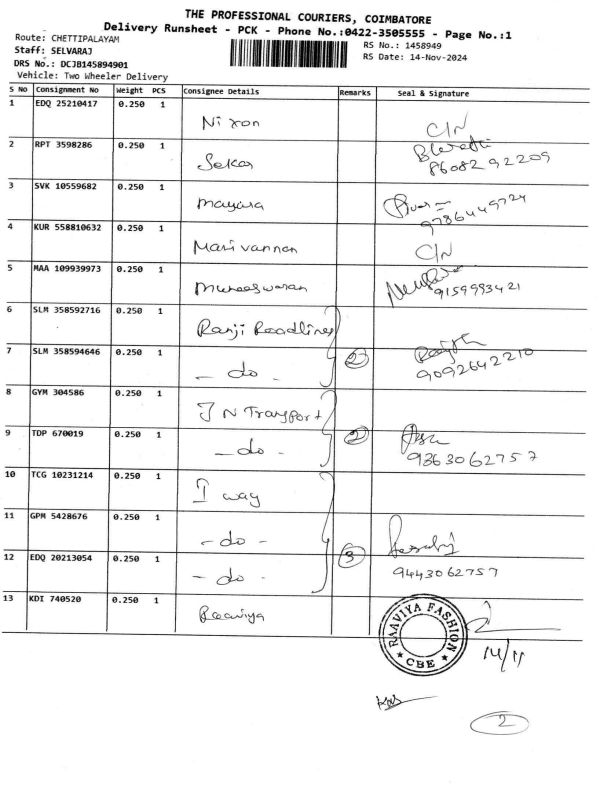 THE PROFESSIONAL COURIERS, COIMBATORE
Delivery Runsheet - PCK - Phone No.:0422-3505555 - Page No.:1
Route: CHETTIPALAYAM
RS No.: 1458949
Staff: SELVARAJ
RS Date: 14-Nov-2024
DRS No.: DCJB145894901
Vehicle: Two Wheeler Delivery
S No Consignment No Weight PCS Consignee Details Remarks Seal & Signature
1 EDQ 25210417 0.250 1 Nixon C/N
2 RPT 3598286 0.250 1 Sekar Bharathi 86082 92209
3 SVK 10559682 0.250 1 mayura 9786449724
4 KUR 558810632 0.250 1 Mari vannan C/N
5 MAA 109939973 0.250 1 muneeswaran 9159993421
6 SLM 358592716 0.250 1 Ranji Roadlines
7 SLM 358594646 0.250 1 - do - 2 9092642210
8 GYM 304586 0.250 1 J N Transport
9 TDP 670019 0.250 1 - do - 2 9363062757
10 TCG 10231214 0.250 1 I way
11 GPM 5428676 0.250 1 - do -
12 EDQ 20213054 0.250 1 - do - 3 9443062757
13 KDI 740520 0.250 1 Raaviya
RAAVIYA FASHION
★ CBE ★
14/11
2